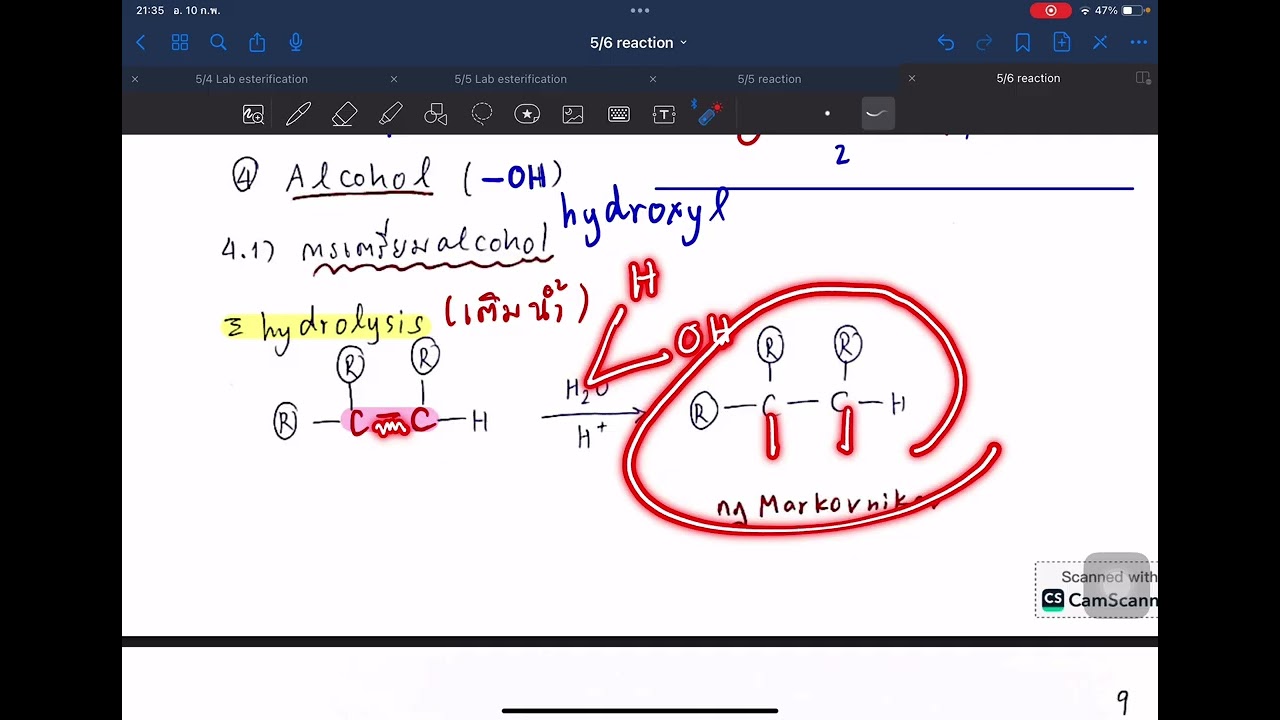 21:35 อ. 10 ก.พ.
47%
5/6 reaction
5/4 Lab esterification
5/5 Lab esterification
5/5 reaction
5/6 reaction
2
④ Alcohol (-OH)
hydroxyl
4.1) การเตรียม alcohol
hydrolysis (เติมน้ำ)
H
OH
R R
R - C = C - H
H₂O
H⁺
R R
R - C - C - H
กฎ Markovnikov
Scanned with
CS CamScann
9